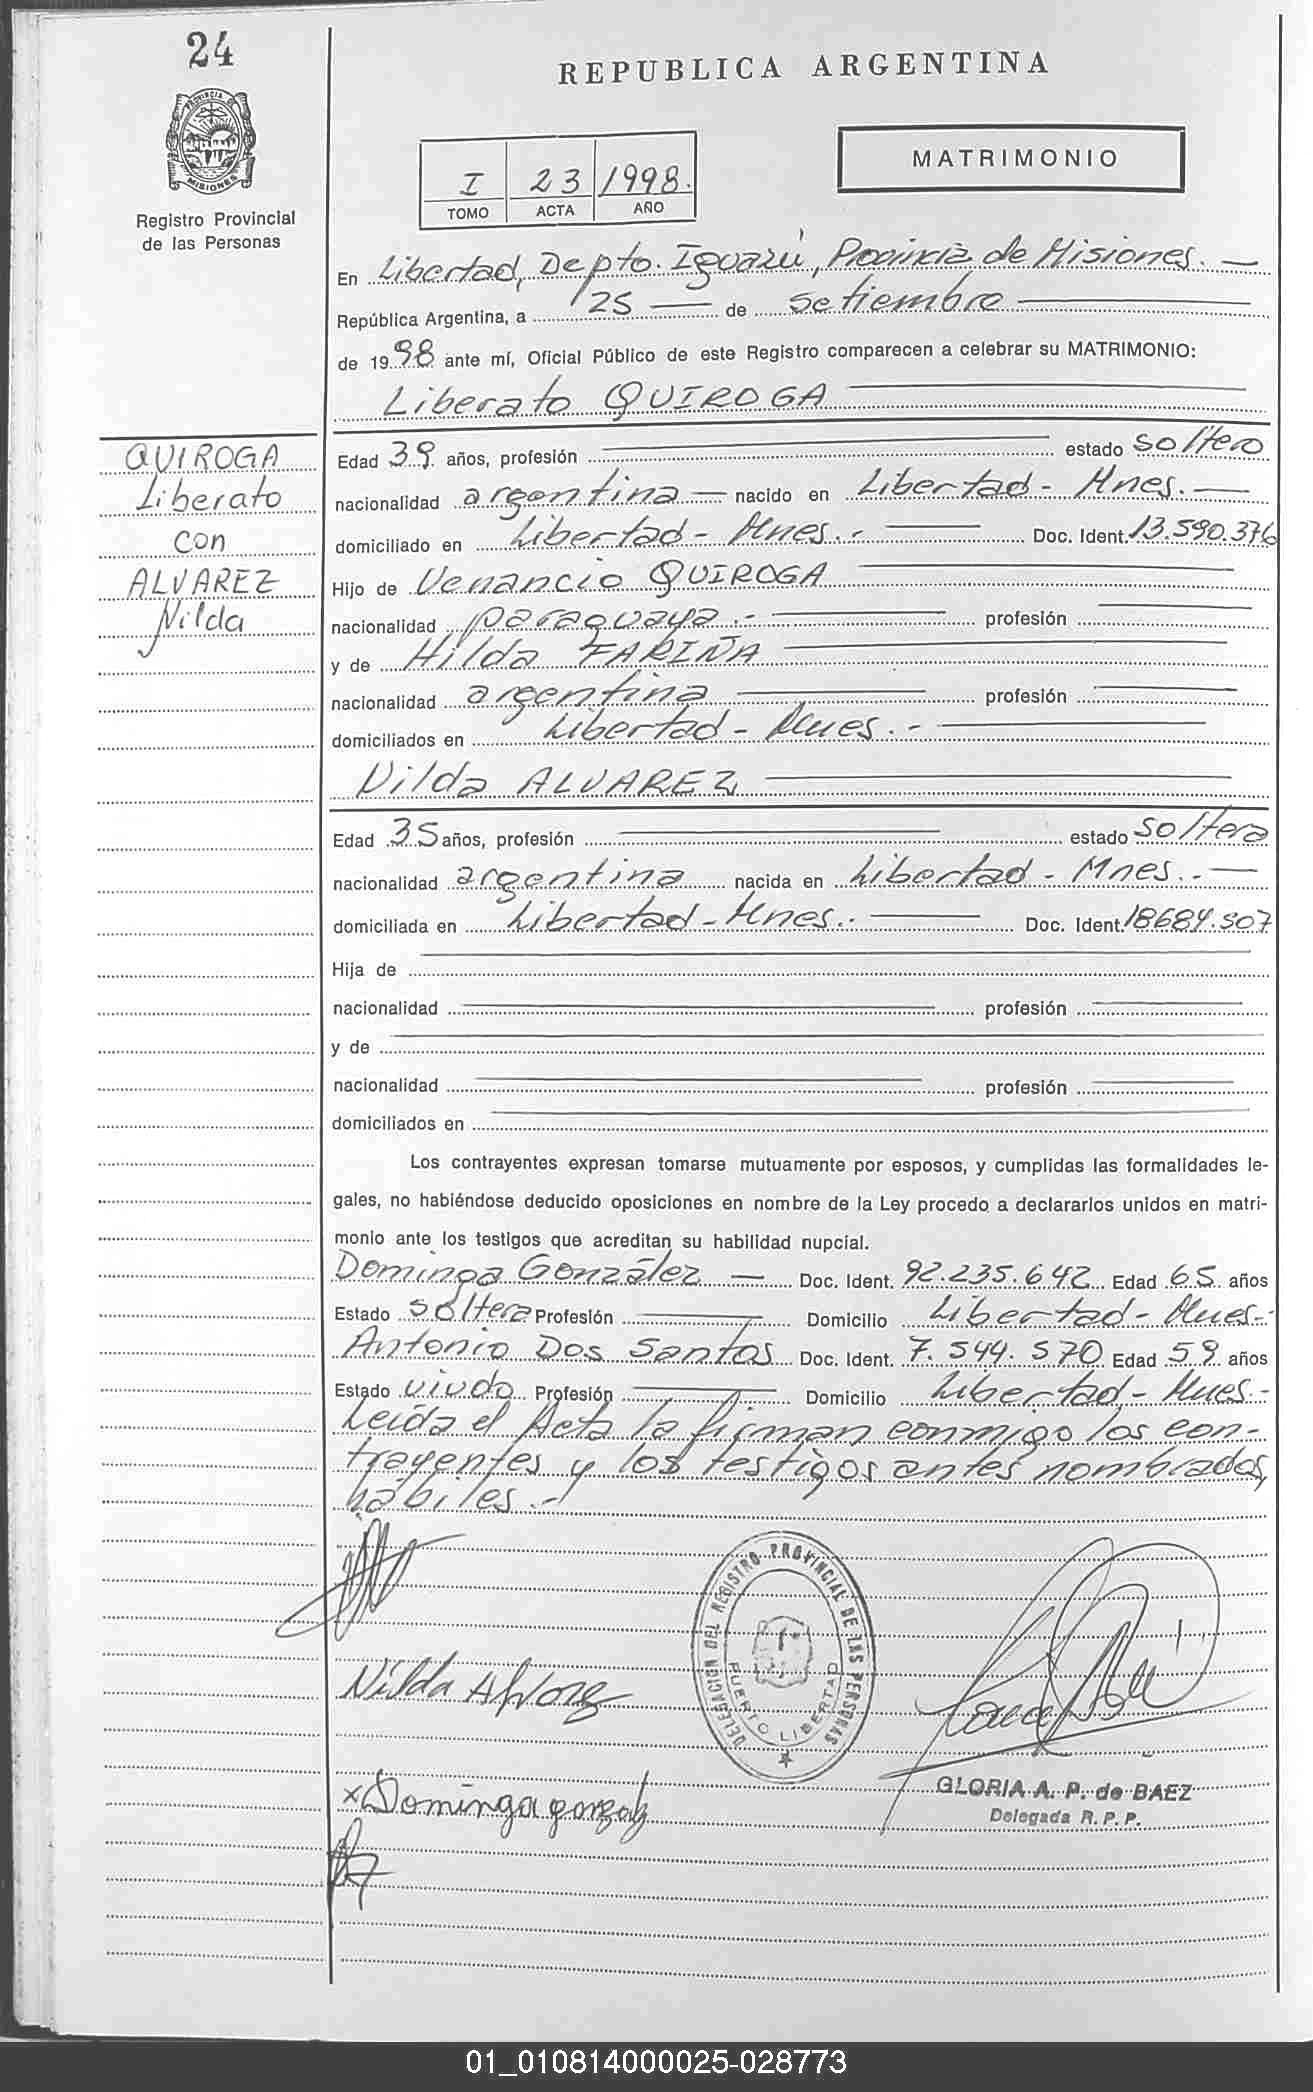 24
PROVINCIA DE
MISIONES
Registro Provincial
de las Personas
REPUBLICA ARGENTINA
I 23 1998.
TOMO ACTA AÑO
MATRIMONIO
En Libertad, Depto. Iguazú, Provincia de Misiones. —
República Argentina, a 25 — de setiembre
de 1998 ante mí, Oficial Público de este Registro comparecen a celebrar su MATRIMONIO:
Liberato QUIROGA
QUIROGA
Liberato
con
ALVAREZ
Nilda
Edad 39 años, profesión estado soltero
nacionalidad argentina — nacido en Libertad - Mnes. —
domiciliado en Libertad - Mnes. - Doc. Ident. 13.590.376
Hijo de Venancio QUIROGA
nacionalidad paraguaya. - profesión
y de Hilda FARIÑA
nacionalidad argentina profesión
domiciliados en Libertad - Mnes. -
Nilda ALVAREZ
Edad 35 años, profesión estado soltera
nacionalidad argentina nacida en Libertad - Mnes. - —
domiciliada en Libertad - Mnes. - Doc. Ident. 18684.507
Hija de
nacionalidad profesión
y de
nacionalidad profesión
domiciliados en
Los contrayentes expresan tomarse mutuamente por esposos, y cumplidas las formalidades le-
gales, no habiéndose deducido oposiciones en nombre de la Ley procedo a declararlos unidos en matri-
monio ante los testigos que acreditan su habilidad nupcial.
Dominga González — Doc. Ident. 92.235.642 Edad 65 años
Estado soltera Profesión Domicilio Libertad - Mnes. -
Antonio Dos Santos Doc. Ident. 7.544.570 Edad 59 años
Estado viudo Profesión Domicilio Libertad - Mnes. -
Leída el Acta la firman conmigo los con-
trayentes y los testigos antes nombrados,
hábiles. -
Nilda Alvarez
DELEGACION DEL REGISTRO PROVINCIAL DE LAS PERSONAS
PUERTO LIBERTAD
x Dominga gonzalez
GLORIA A. P. de BAEZ
Delegada R. P. P.
01_010814000025-028773